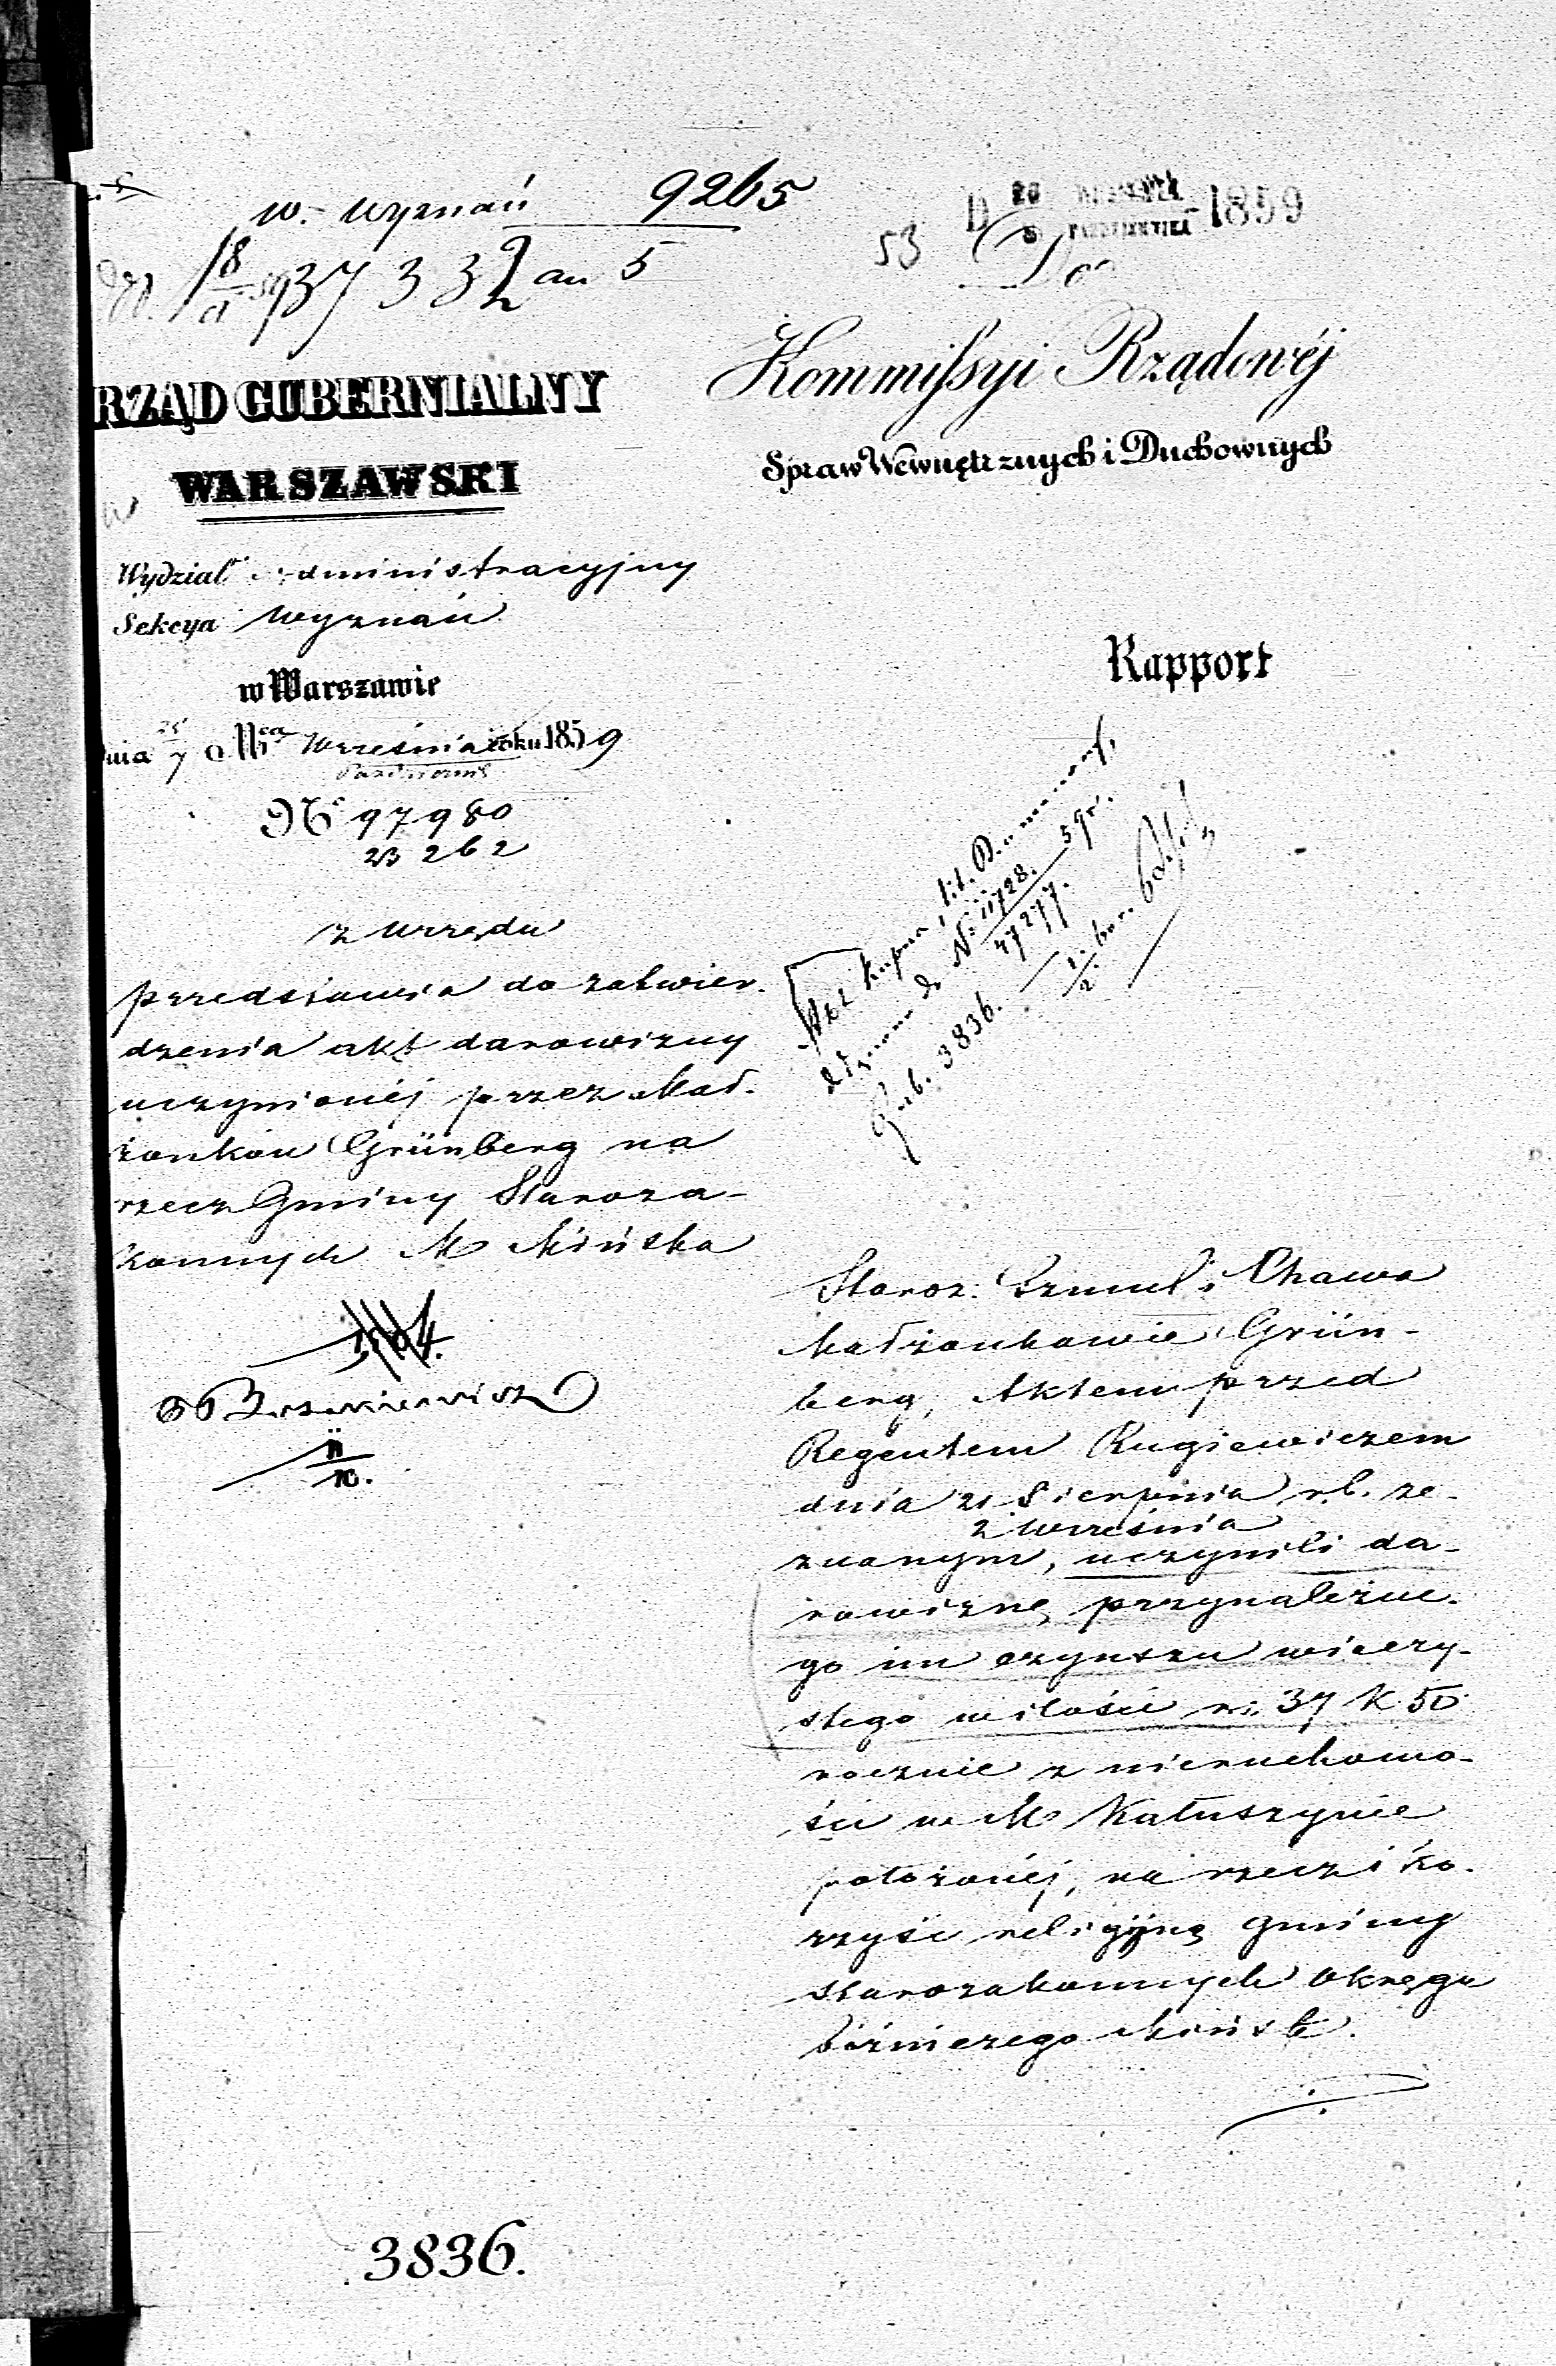 w. wyznań 9265
37332 an 5
53
1859
Do
RZĄD GUBERNIALNY
WARSZAWSKI
Kommissyi Rządowéj
Spraw Wewnętrznych i Duchownych
Wydział Administracyjny
Sekcya Wyznań
w Warszawie
Rapport
dnia 25/7 Mca Września roku 1859
Październ
No 97980
23262
z Urzędu
przedstawia do zatwier-
dzenia akt darowizny
uczynionéj przez Mał-
żonków Grünberg na
rzecz Gminy Staroza-
konnych M Mińska
No 11728.
37277.
3836.
Staroz. Szmul i Chawa
Małżonkowie Grün-
berg, Aktem przed
Regentem Rugiewiczem
dnia 21 Sierpnia r.b. ze-
2 Września
znanym, uczynili da-
rowiznę przynależne-
go im czynszu wieczy-
stego w ilości rs. 37 K. 50
rocznie z nieruchomo-
ści w M Kałuszynie
położonéj, na rzecz i ko-
rzyść religijną gminy
starozakonnych Okręgu
bóżniczego Mińsk.
11/10.
3836.